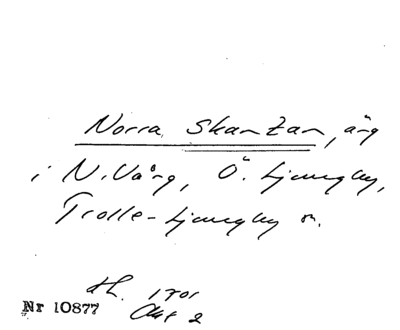 Norra Skanzan, äng
i N. Vång, Ö. Ljungby,
Trolle-Ljungby sn.
Nr 10877
Akt 2